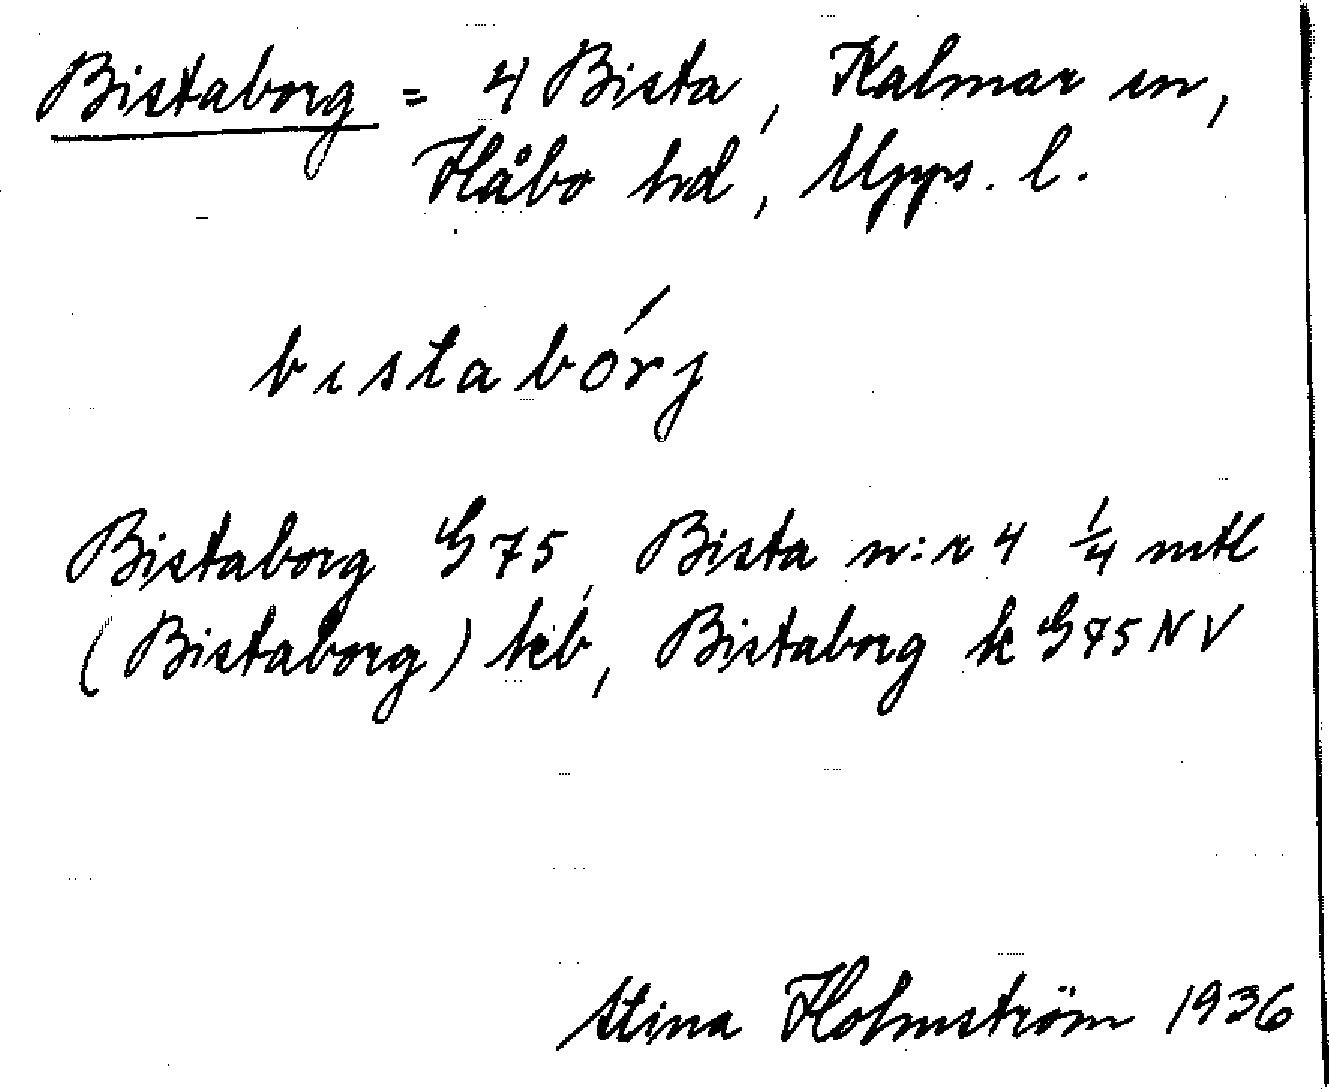 Bistaborg = 4 Bista, Kalmar sn,
Håbo hd, Upps. l.
bıstabórj
Bistaborg G75, Bista n:r 4 1/4 mtl
(Bistaborg) kb, Bistaborg k G75 NV
Stina Holmström 1936